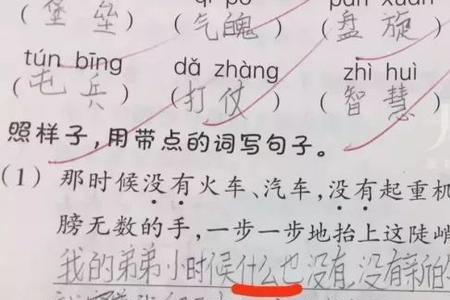 (堡垒) (气魄) (盘旋)
tún bīng dǎ zhàng zhì huì
(屯兵) (打仗) (智慧)
照样子,用带点的词写句子。
(1) 那时候没有火车、汽车,没有起重机
膀无数的手,一步一步地抬上这陡峭
我的弟弟小时候什么也没有,没有新的